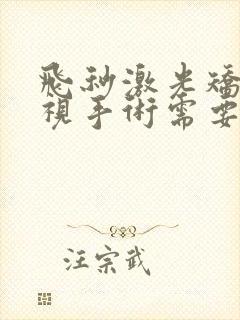 飛秒激光矯
視手術需要
汪宗武